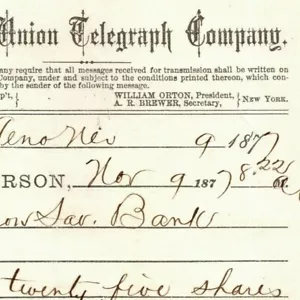 Union Telegraph Company.
any require that all messages received for transmission shall be written on
Company, under and subject to the conditions printed thereon, which con-
by the sender of the following message.
p't, WILLIAM ORTON, President,
A. R. BREWER, Secretary, NEW YORK.
Reno Nev 9 1877
ERSON, Nov 9 1877 8.22
ow Sav. Bank
twenty five shares